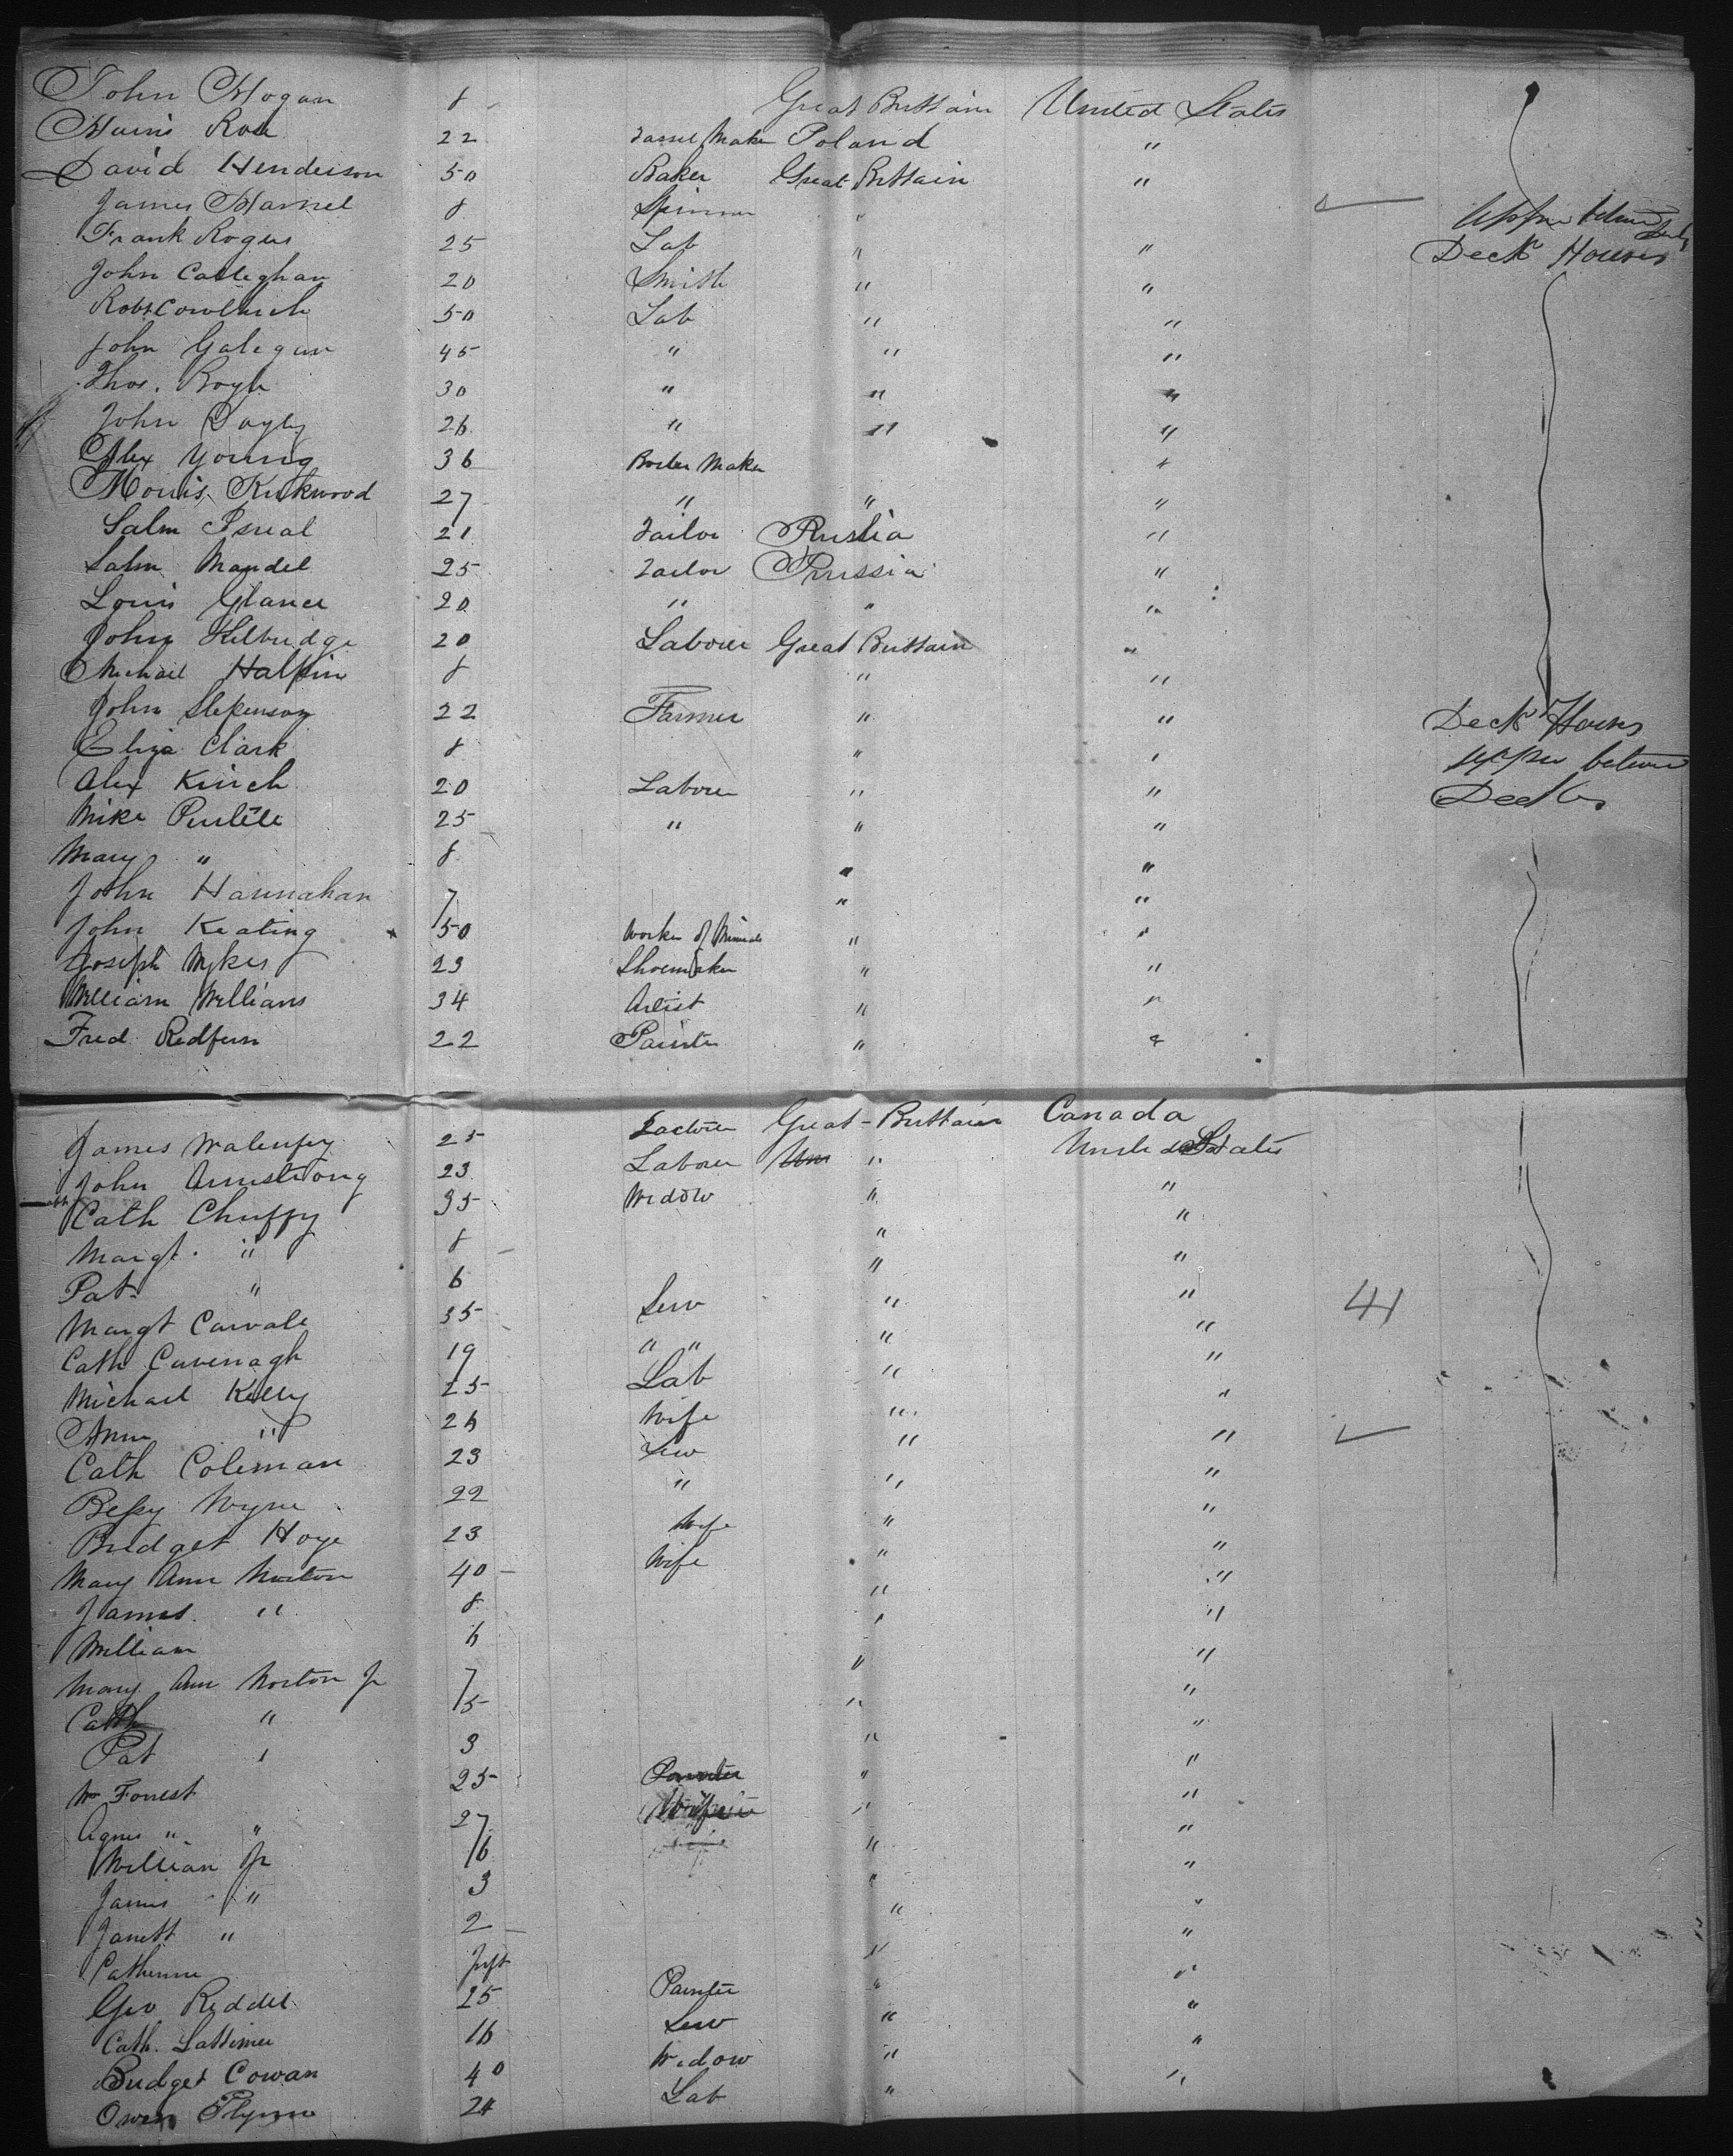 John Hogan 8 Great Brittain United States
Harris Rose 22 Tassel Maker Poland "
David Henderson 50 Baker Great Brittain "
James 8 Spinner "
Frank Rogers 25 Lab " " Upper between Decks
John Calleghan 20 Smith " " Deck Houses
Robt 50 Lab " "
John Galegan 45 " " "
Thos. Boyle 30 " " "
John Dayly 26 " " "
Alex Young 36 Boiler Maker "
Morris Kirkwood 27 " " "
Salm Isreal 21 Tailor Russia "
Salm Mandel 25 Tailor Prussia "
Louis Glance 20 " " "
John Kilbridge 20 Labourer Great Brittain "
Michael Halpin 8 " "
John Stepenson 22 Farmer " " Deck Houses
Eliza Clark 8 " " upper between
Alex Kinch 20 Labourer " " Decks
Mike 25 " " "
Mary " 8 " "
John Hannahan 7 " "
John Keating 50 Worker of "
Joseph Wykes 23 Shoemaker " "
William Willians 34 Artist " "
Fred Redfern 22 Painter " "
James 25 Great-Brittain Canada
John Armstrong 23 Labourer " United States
Cath Chuffy 35 Widow " "
Margt. " 8 " "
Pat. " 6 " "
Margt 35 Serv " " 41
Cath Cavenagh 19 " " " "
Michael Kelly 25 Lab " "
Ann " 26 Wife " "
Cath Coleman 23 Serv " "
Bessy Wynn 22 " " "
Bridget Hoye 23 Wife " "
Mary Ann Norton 40 Wife " "
James " 8 " "
William 6 " "
Mary Ann Norton Jr 7 " "
Cath " 5 " "
Pat " 3 " "
Wm Forrest 25 Painter " "
Agnes " " 27 Wife " "
William Jr 6 " "
James " 3 " "
Janett " 2 " "
Catherine Inft " "
Geo Riddel 25 Painter " "
Cath. Lattimer 16 Serv " "
Bridget Cowan 40 Widow " "
Owen Flynn 24 Lab " "